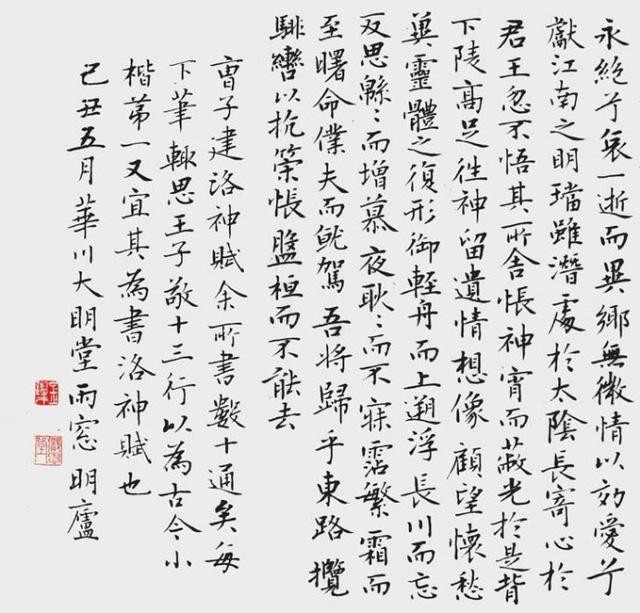 永絕兮哀一逝而異鄉無微情以効愛兮
獻江南之明璫雖潛處於太陰長寄心於
君王忽不悟其所舍悵神宵而蔽光於是背
下陵高足往神留遺情想像顧望懷愁
冀靈體之復形御輕舟而上遡浮長川而忘
反思緜〻而增慕夜耿〻而不寐霑繁霜而
至曙命僕夫而就駕吾將歸乎東路攬
騑轡以抗策悵盤桓而不能去
曹子建洛神賦余所書數十通矣每
下筆輒思王子敬十三行以為古今小
楷第一又宜其為書洛神賦也
己丑五月華川大明堂雨窓明廬